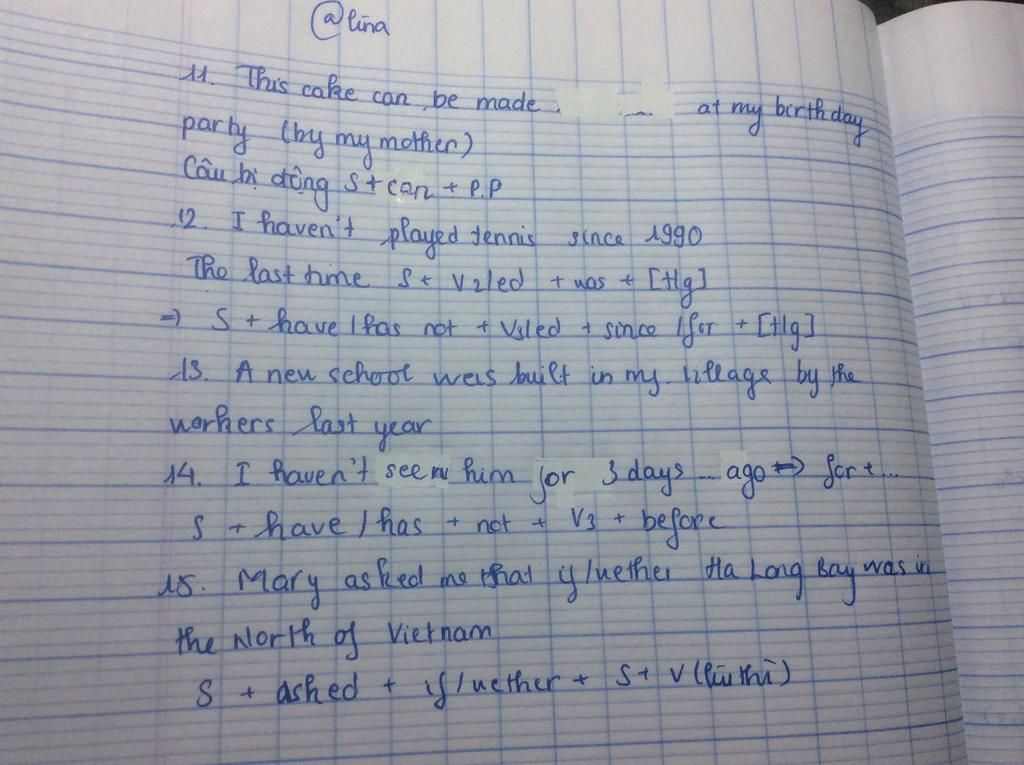 @lina
11. This cake can be made at my birthday
party (by my mother)
Câu bị động S + can + P.P
12. I haven't played tennis since 1990
The last time S + V2/ed + was + [t/g]
=> S + have / has not + V3/ed + since / for + [t/g]
13. A new school was built in my village by the
workers last year
14. I haven't seen him for 3 days ... ago <=> for + ...
S + have / has + not + V3 + before
15. Mary asked me that if / wether Ha Long Bay was in
the North of Vietnam
S + asked + if / wether + S + V (lùi thì)